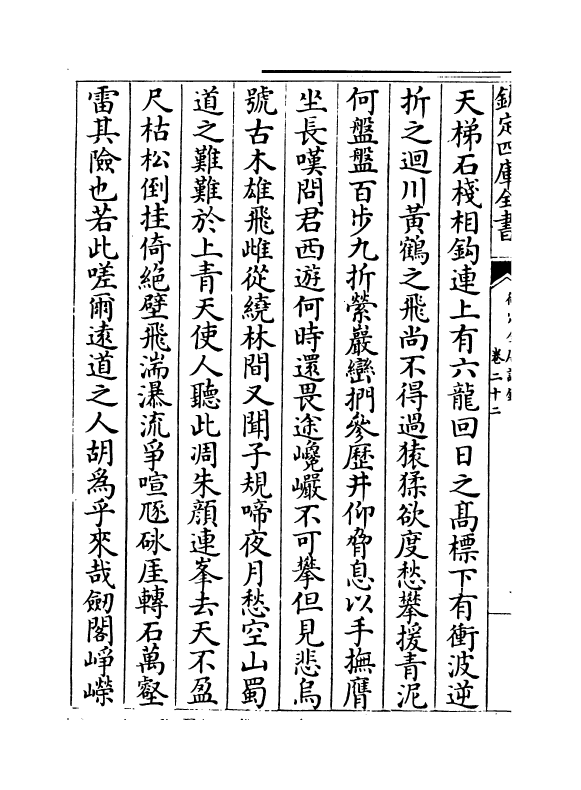 欽定四庫全書
卷二十二
天梯石棧相鈎連上有六龍回日之髙標下有衝波逆
折之迴川黃鶴之飛尚不得過猿猱欲度愁攀援青泥
何盤盤百步九折縈巖巒捫參歷井仰脅息以手撫膺
坐長嘆問君西遊何時還畏途巉巖不可攀但見悲鳥
號古木雄飛雌從繞林間又聞子規啼夜月愁空山蜀
道之難難於上青天使人聽此凋朱顔連峯去天不盈
尺枯松倒挂倚絶壁飛湍瀑流爭喧豗砯厓轉石萬壑
雷其險也若此嗟爾遠道之人胡為乎來哉劒閣崢嶸